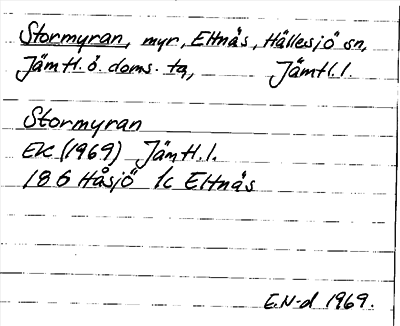 Stormyran, myr, Eltnäs, Hällesjö sn,
Jämtl. ö. doms. tg, Jämtl. l.
Stormyran
EK (1969) Jämtl. l.
18 G Håsjö 1c Eltnäs
E.N-d 1969.